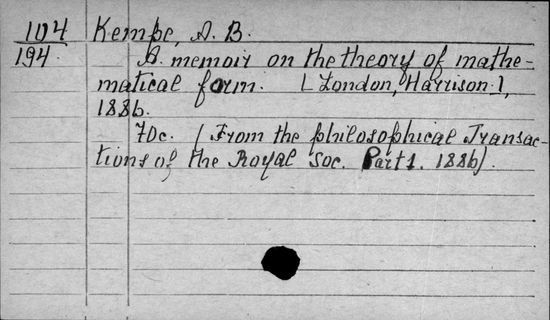 104 Kempe, A. B.
194 A. memoir on the theory of mathe-
matical form. [London, Harrison],
1886.
70c. (From the philosophical Transac-
tions of the Royal Soc. Part 1. 1886).